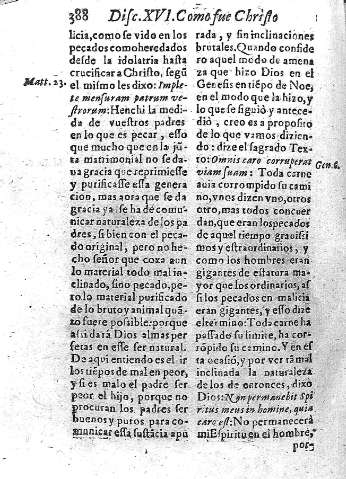 388 Disc. XVI. Como fue Christo
licia, como se vido en los
pecados comoheredados
desde la idolatria hasta
crucificar a Christo, segũ
Matt. 23. el mismo les dixo: Imple-
te mensuram patrum ve-
strorum: Henchi la medi-
da de vuestros padres
en lo que es pecar, esso
que mucho que en la jũ-
ta matrimonial no se da-
ua gracia que reprimiesse
y purificasse essa genera
cion, mas aora que se da
gracia ya se ha de comu-
nicar naturaleza de los pa
dres, si bien con el peca-
do original, pero no he-
cho señor que coxa aun
lo material todo mal in-
clinado, sino pecado, pe-
ro lo material purificado
de lo bruto y animal quã-
to fuere possible: porque
assi dará Dios almas per
fetas en esse ser natural.
De aqui entiendo es el ir
los tiẽpos de mal en peor,
y si es malo el padre ser
peor el hijo, porque no
procuran los padres ser
buenos y puros para co-
municar essa sustãcia apu
rada, y sin inclinaciones
brutales. Quando conside
ro aquel modo de amena
za que hizo Dios en el
Genesis en tiẽpo de Noe,
en el modo que la hizo, y
lo que se siguió y antece-
dió, creo es a proposito
de lo que vamos dizien-
do: dize el sagrado Tex-
to: Omnis caro corruperat Gen. 6.
viam suam: Toda carne
auia corrompido su cami
no, vnos dizen vno, otros
otro, mas todos concuer
dan, que eran los pecados
de aquel tiempo grauissi
mos y estraordinarios, y
como los hombres eran
gigantes de estatura ma-
yor que los ordinarios, as
si los pecados en malicia
eran gigantes, y esso dize
el termino: Toda carne ha
passado su limite, ha cor-
rõpido su camino. Y en es
ta ocasiõ, y por ver tã mal
inclinada la naturaleza
de los de entonces, dixo
Dios: Non permanebit Spi
ritus meus in homine, quia
caro est: No permanecerà
mi Espiritu en el hombre,
por-